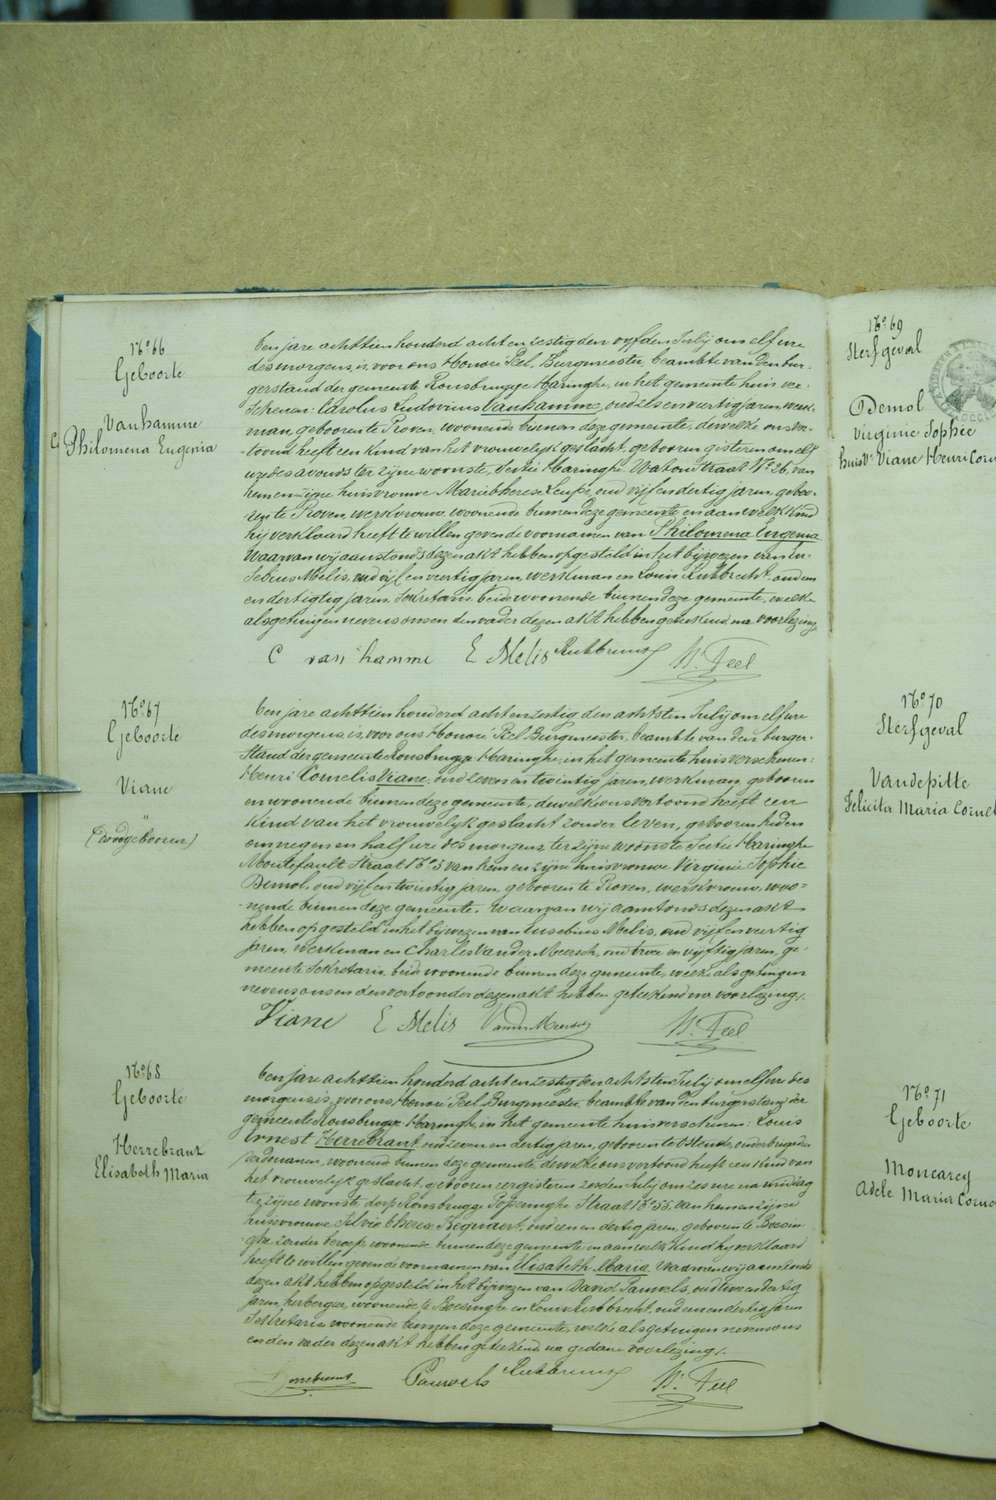 No. 66
Geboorte
Vanhamme
Philomena Eugenia
Een jare achttien honderd acht en zestig den vyfden July om elf ure
des morgens is voor ons Honoré Peel, Burgmeester, beambte van den bur-
gerstand der gemeente Rousbrugge Haringhe, in het gemeente huis ver-
schenen: Carolus Ludovicus Vanhamme, oud zes en veertig jaren, werk-
man, geboren te Proven, woonende binnen deze gemeente, dewelke ons ver-
toond heeft een kind van het vrouwelyk geslacht, geboren gisteren om elf
ure des avonds ter zyne woonste, Sectie Haringhe Watoustraat No. 26, van
hem en zyne huisvrouwe Marie Therese, oud vyf en dertig jaren, geboo-
ren te Proven, werkvrouw, woonende binnen deze gemeente en aan welk kind
hy verklaard heeft te willen geven de voornamen van Philomena Eugenia
Waarvan wy aanstonds dezen akt hebben opgesteld in het bywezen van Eu-
sebius Melis, oud vyf en veertig jaren, werkman en Louis Lubbrecht, oud een
en dertig jaren, Sekretaris beide woonende binnen deze gemeente, welke
als getuigen nevens ons en den vader dezen akt hebben geteekend na voorlezing
C van hamme E Melis Lubbrecht H. Peel
No. 67
Geboorte
Viane
(Doodgebooren)
Een jare achttien honderd acht en zestig den achtsten July om elf ure
des morgens is voor ons Honoré Peel Burgmeester, beambte van den burger-
stand der gemeente Rousbrugge Haringhe, in het gemeente huis verschenen:
Henri Cornelis Viane, oud zeven en twintig jaren, werkman, geboren
en woonende binnen deze gemeente, dewelke ons vertoond heeft een
kind van het vrouwelyk geslacht zonder leven, geboren heden
om negen en half ure des morgens ter zyne woonste Sectie Haringhe
Straat No. 5 van hem en zyne huisvrouwe Virginie Sophie
Demol, oud vyf en twintig jaren, geboren te Proven, werkvrouw, woo-
nende binnen deze gemeente. Waarvan wy aanstonds dezen akt
hebben opgesteld in het bywezen van Eusebius Melis, oud vyf en veertig
jaren, werkman en Charles Van der Meersch, oud twee en vyftig jaren, ge-
meente Sekretaris, beide woonende binnen deze gemeente, welke als getuigen
nevens ons en den vertoonder dezen akt hebben geteekend na voorlezing.
Viane E Melis Vander Meersch H. Peel
No. 68
Geboorte
Herrebrant
Elisabeth Maria
Een jare achttien honderd acht en zestig den achtsten July om elf ure des
morgens is voor ons Honoré Peel Burgmeester, beambte van den burgerstand der
gemeente Rousbrugge Haringhe, in het gemeente huis verschenen: Louis
Ernest Herrebrant, oud zeven en dertig jaren, geboren te
woonende binnen deze gemeente, dewelke ons vertoond heeft een kind van
het vrouwelyk geslacht, geboren eergisteren zesden July om zes ure na middag
ter zyne woonste dorp Rousbrugge Poperinghe Straat No. 55, van hem en zyne
huisvrouwe Silvie Theresia, oud een en dertig jaren, geboren te Boesin-
ghe, zonder beroep, woonende binnen deze gemeente, en aan welk kind hy verklaard
heeft te willen geven de voornamen van Elisabeth Maria. Waarvan wy aanstonds
dezen akt hebben opgesteld in het bywezen van David Pauwels, oud en dertig
jaren, herbergier, woonende te Boesinghe en Louis Lubbrecht, oud een en dertig jaren
Sekretaris woonende binnen deze gemeente, welke als getuigen nevens ons
en den vader dezen akt hebben geteekend na gedane voorlezing.
Herrebrant Pauwels Lubbrecht H. Peel
No. 69
Sterfgeval
Demol
Virginie Sophie
huisv. Viane Henri Corn
No. 70
Sterfgeval
Vandepitte
Felicita Maria Cornel
No. 71
Geboorte
Moncarey
Adele Maria Corne